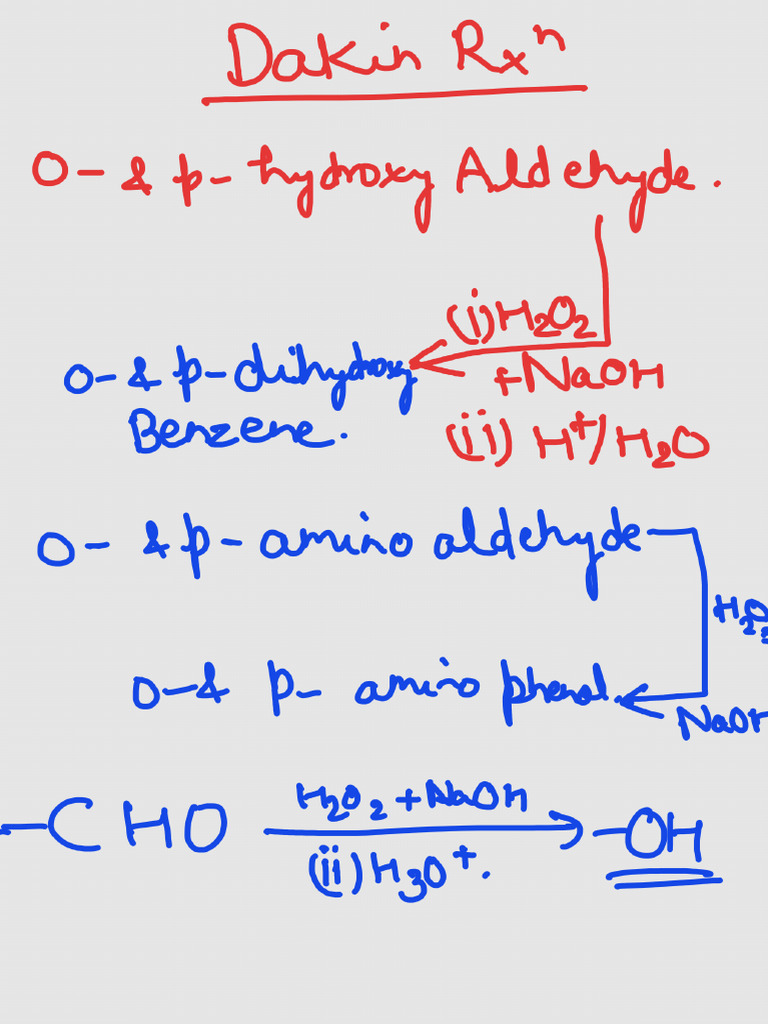 Dakin Rxⁿ
O- & p- hydroxy Aldehyde.
(i) H₂O₂
+NaOH
(ii) H⁺/H₂O
O- & p- dihydroxy
Benzene.
O- & p- amino aldehyde
H₂O₂
O-& p- amino phenol.
NaOH
H₂O₂ + NaOH
-CHO → -OH
(ii) H₃O⁺.